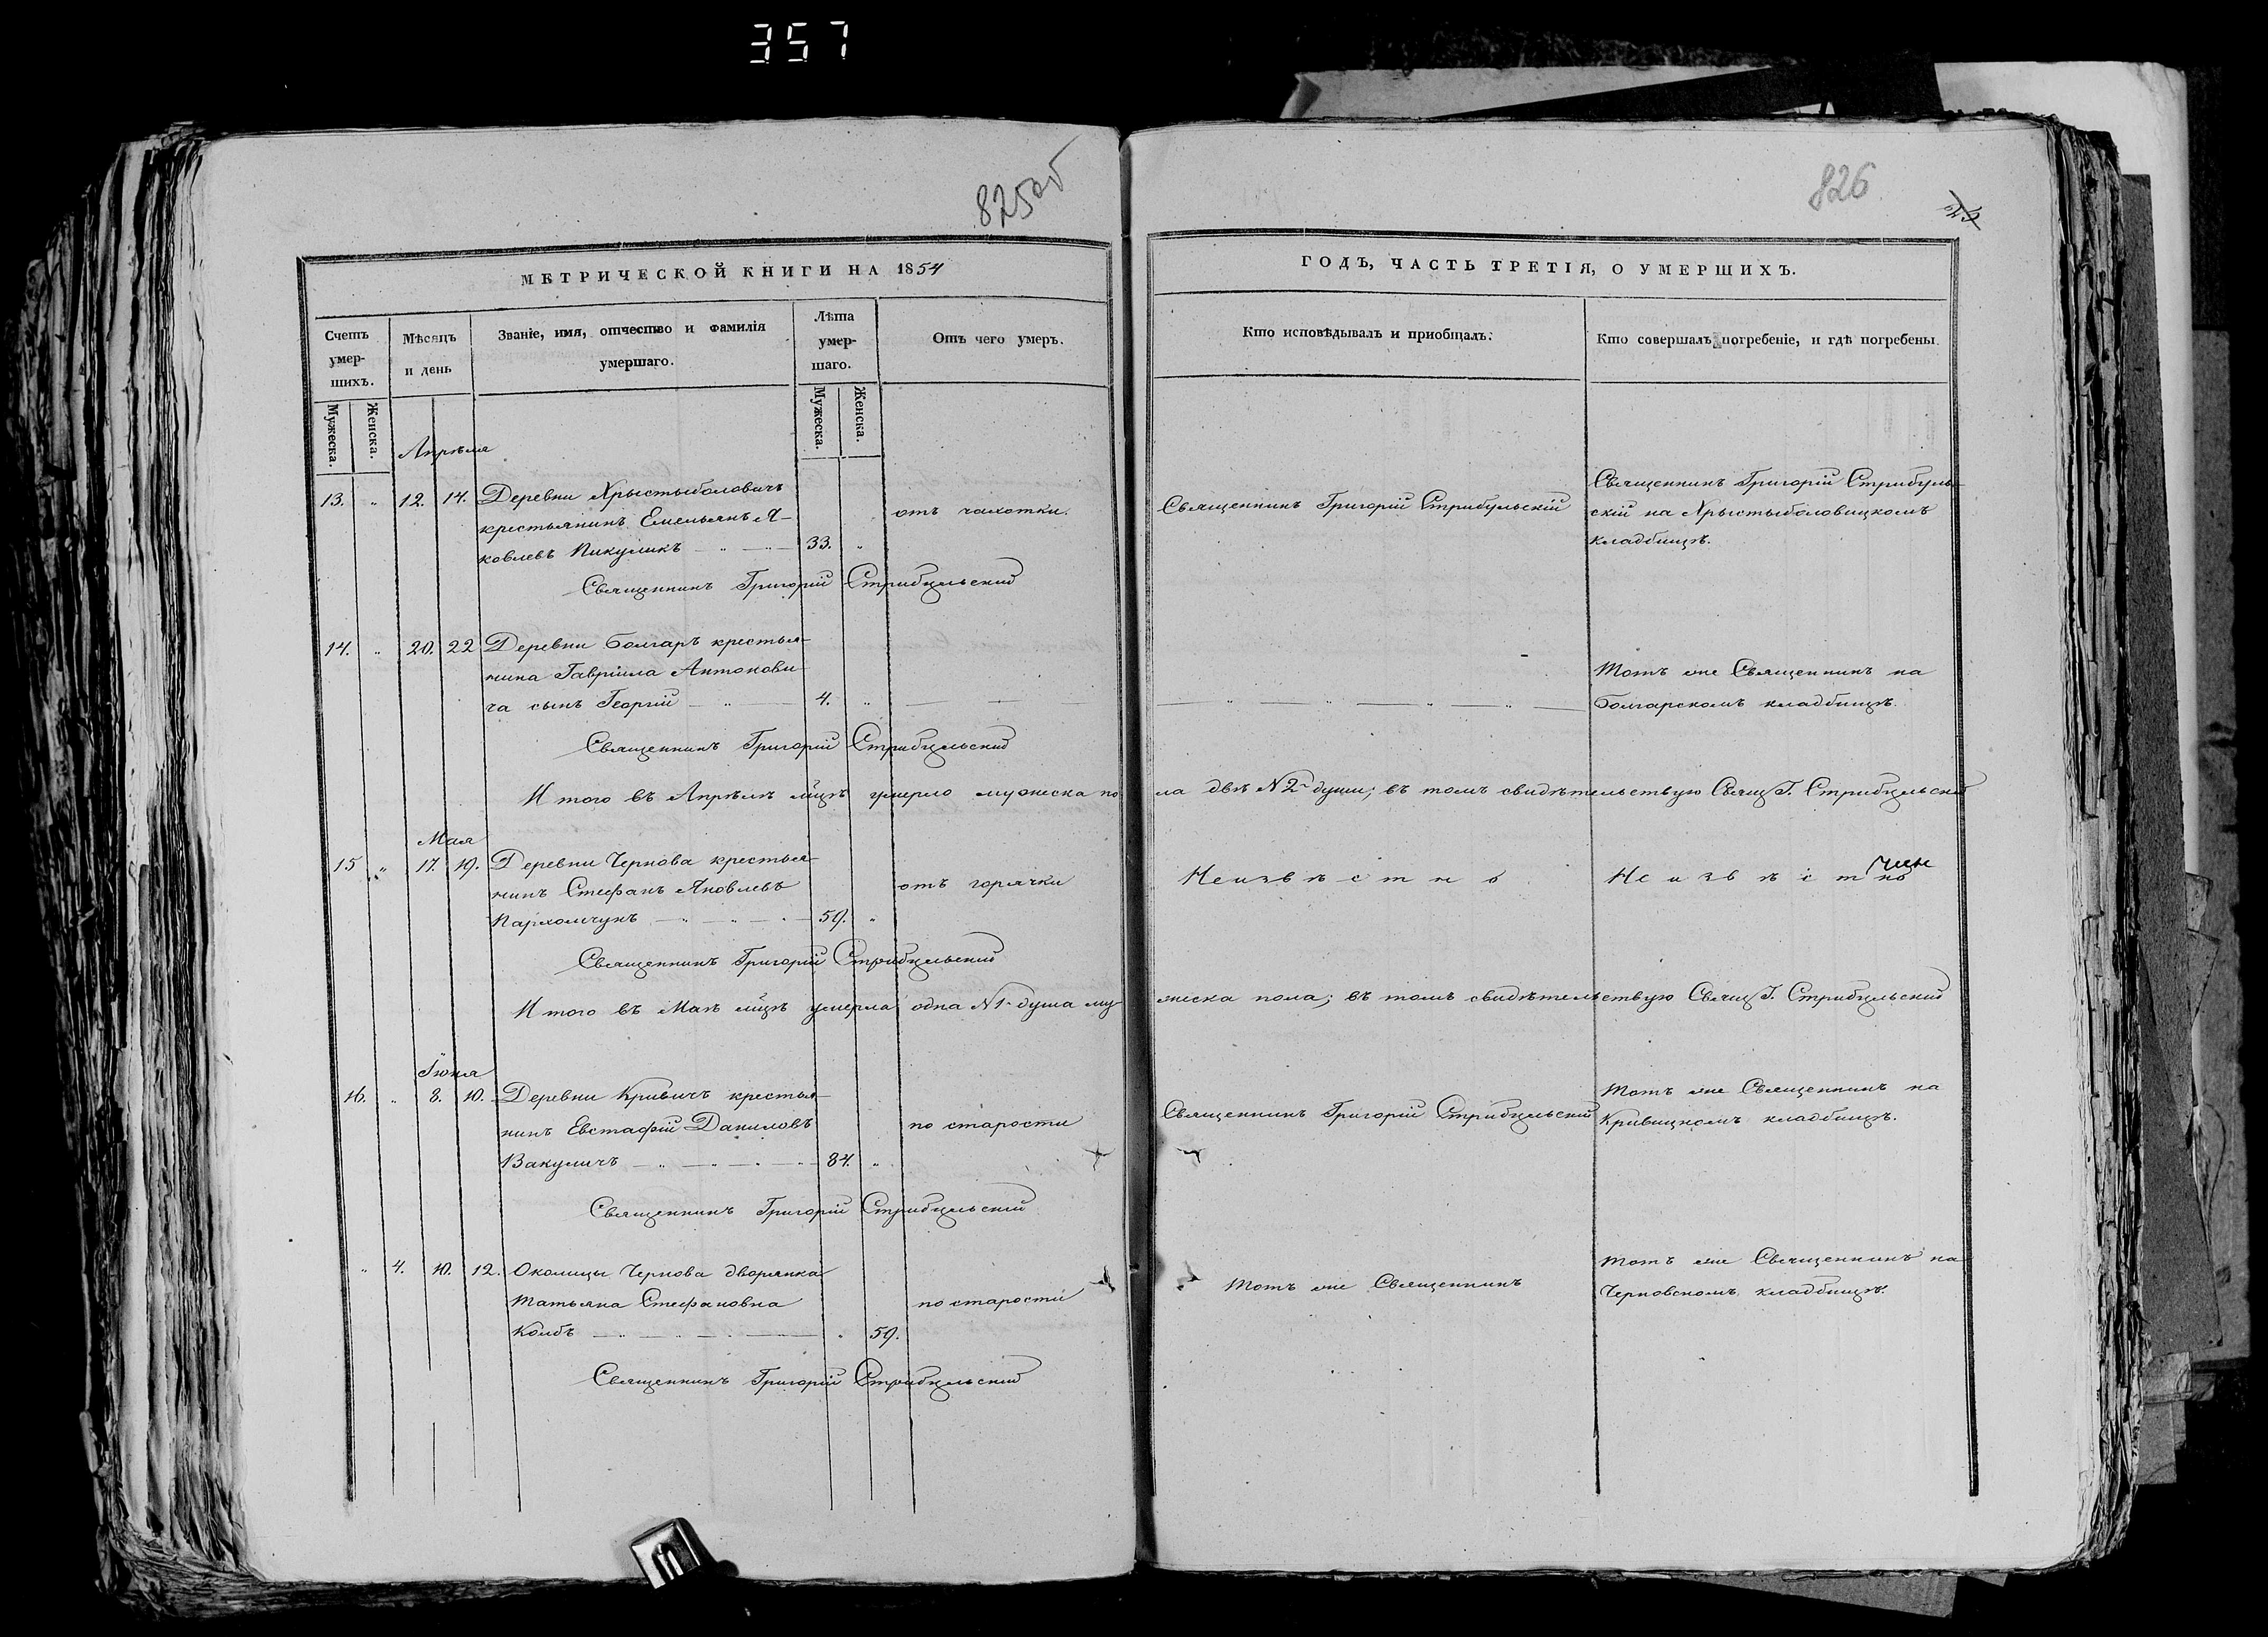 357
825об
826
МЕТРИЧЕСКОЙ КНИГИ НА 1854
ГОДЪ, ЧАСТЬ ТРЕТІЯ, О УМЕРШИХЪ.
Счетъ умер-шихъ.
Мѣсяцъ и день
Званіе, имя, отчество и фамилія умершаго.
Лѣта умер-шаго.
Отъ чего умеръ.
Кто исповѣдывалъ и пріобщалъ.
Кто совершалъ погребеніе, и гдѣ погребены.
Мужеска.
Женска.
Мужеска.
Женска.
Апрѣля
13. " 12. 14. Деревни Хрыстыболовичъ
крестьянинъ Емельянъ Я-
ковлевъ Пикуликъ 33. "
отъ чахотки.
Священникъ Григорій Стрибульскій
Священникъ Григорій Стрибуль-
скій на Хрыстыболовицкомъ
кладбищѣ.
Священникъ Григорій Стрибульскій
14. " 20. 22 Деревни Болгаръ крестья-
нина Гавріила Антонови-
ча сынъ Георгій 4. "
Тотъ же Священникъ на
Болгарскомъ кладбищѣ.
Священникъ Григорій Стрибульскій
Итого въ Апрѣлѣ мцѣ умерло мужеска по
ла двѣ N 2 души; въ томъ свидѣтельствую Свящ. Г. Стрибульскій
Мая
15 " 17. 19. Деревни Чернова крестья-
нинъ Стефанъ Яковлевъ
Пархомчукъ 59. "
отъ горячки
Неизвѣстно
Неизвѣстно
Священникъ Григорій Стрибульскій
Итого въ Маѣ мцѣ умерла одна N 1 душа му
жеска пола; въ томъ свидѣтельствую Свящ. Г. Стрибульскій
Іюня
16. " 8. 10. Деревни Кривичъ крестья-
нинъ Евстафій Даниловъ
Вакуличъ 84. "
по старости
Священникъ Григорій Стрибульскій
Тотъ же Священникъ на
Кривицкомъ кладбищѣ.
Священникъ Григорій Стрибульскій
" 4. 10. 12. Околицы Чернова дворянка
Татьяна Стефановна
Колбъ " 59.
по старости
Тотъ же Священникъ
Тотъ же Священникъ на
Черновскомъ кладбищѣ.
Священникъ Григорій Стрибульскій